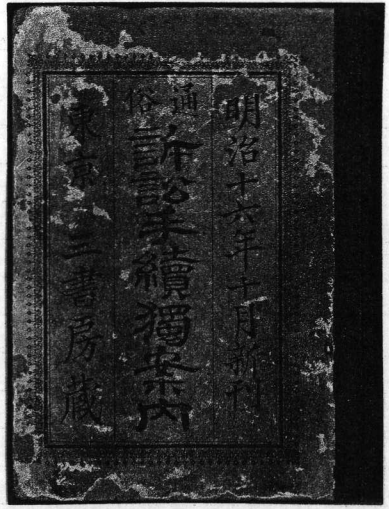 明治十六年十月新刊
通俗
訴訟手續獨案內
東京 三書房蔵